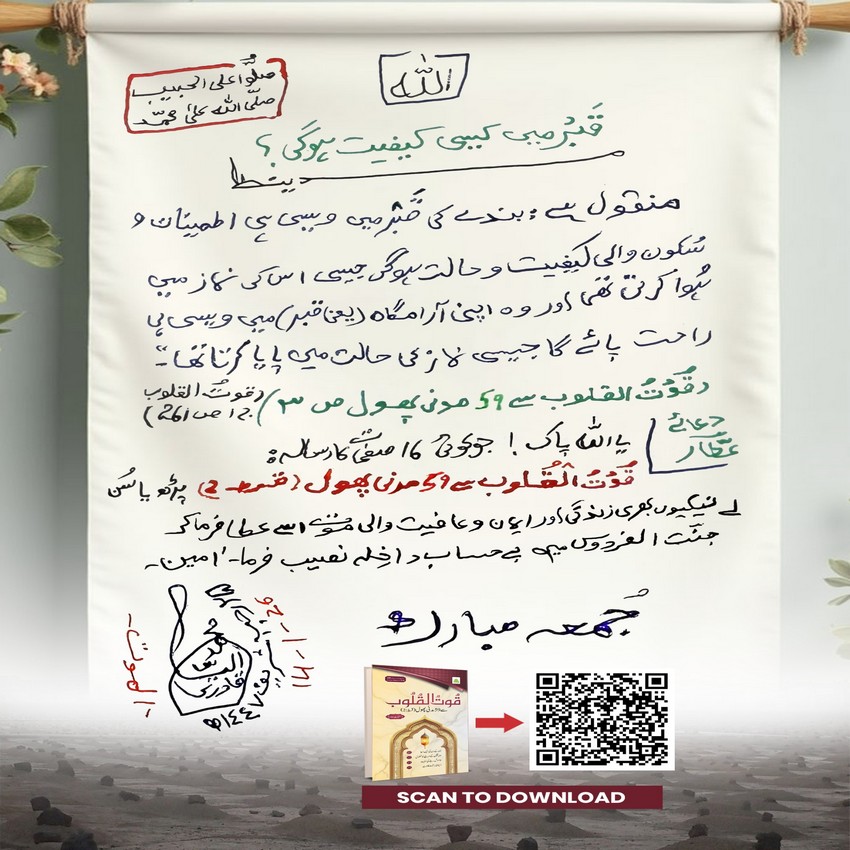 اللہ
صلُّوا علی الحبیب
صلَّی اللہ علیٰ محمَّد
قَبْر میں کیسی کیفیت ہوگی؟
منقول ہے: بندے کی قَبْر میں ویسی ہی اطمینان و
سُکون والی کیفیت و حالت ہوگی جیسی اس کی نماز میں
ہُوا کرتی تھی اور وہ اپنی آرامگاہ (یعنی قبر) میں ویسی ہی
راحت پائے گا جیسی نماز کی حالت میں پایا کرتا تھا۔
(قُوْتُ القلوب سے 59 مدنی پھول ص ۳)
(قوتُ القلوب
ج 1 ص 261)
دعائے
عطّار
یا اللہ پاک! جو کوئی 16 صفحے کا رسالہ:
قُوْتُ الْقُلوب سے 59 مدنی پھول (قسط 2) پڑھ یا سُن
لے نیکیوں بھری زندگی اور ایمان و عافیت والی موت اسے عطا فرما کر
جنَّت الفردوس میں بے حساب داخِلہ نصیب فرما۔ امین۔
جُمعہ مبارک
محمد الیاس قادری
۱۴۴۷ھ
الموت
قُوتُ القُلُوب
SCAN TO DOWNLOAD